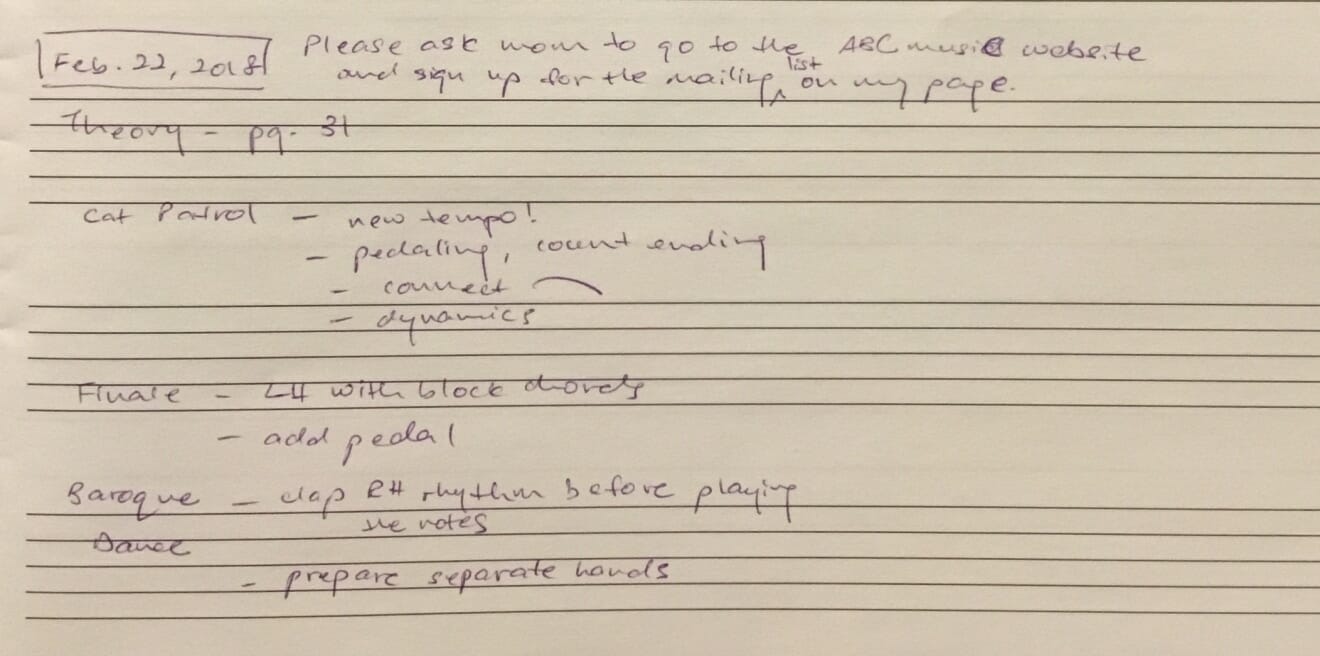 Feb. 22, 2018
Please ask mom to go to the ABC music website
and sign up for the mailing list on my page.
Theory - pg. 31
Cat Patrol - new tempo!
- pedaling, count ending
- connect
- dynamics
Finale - LH with block chords
- add pedal
Baroque - clap RH rhythm before playing
the notes
Dance
- prepare separate hands